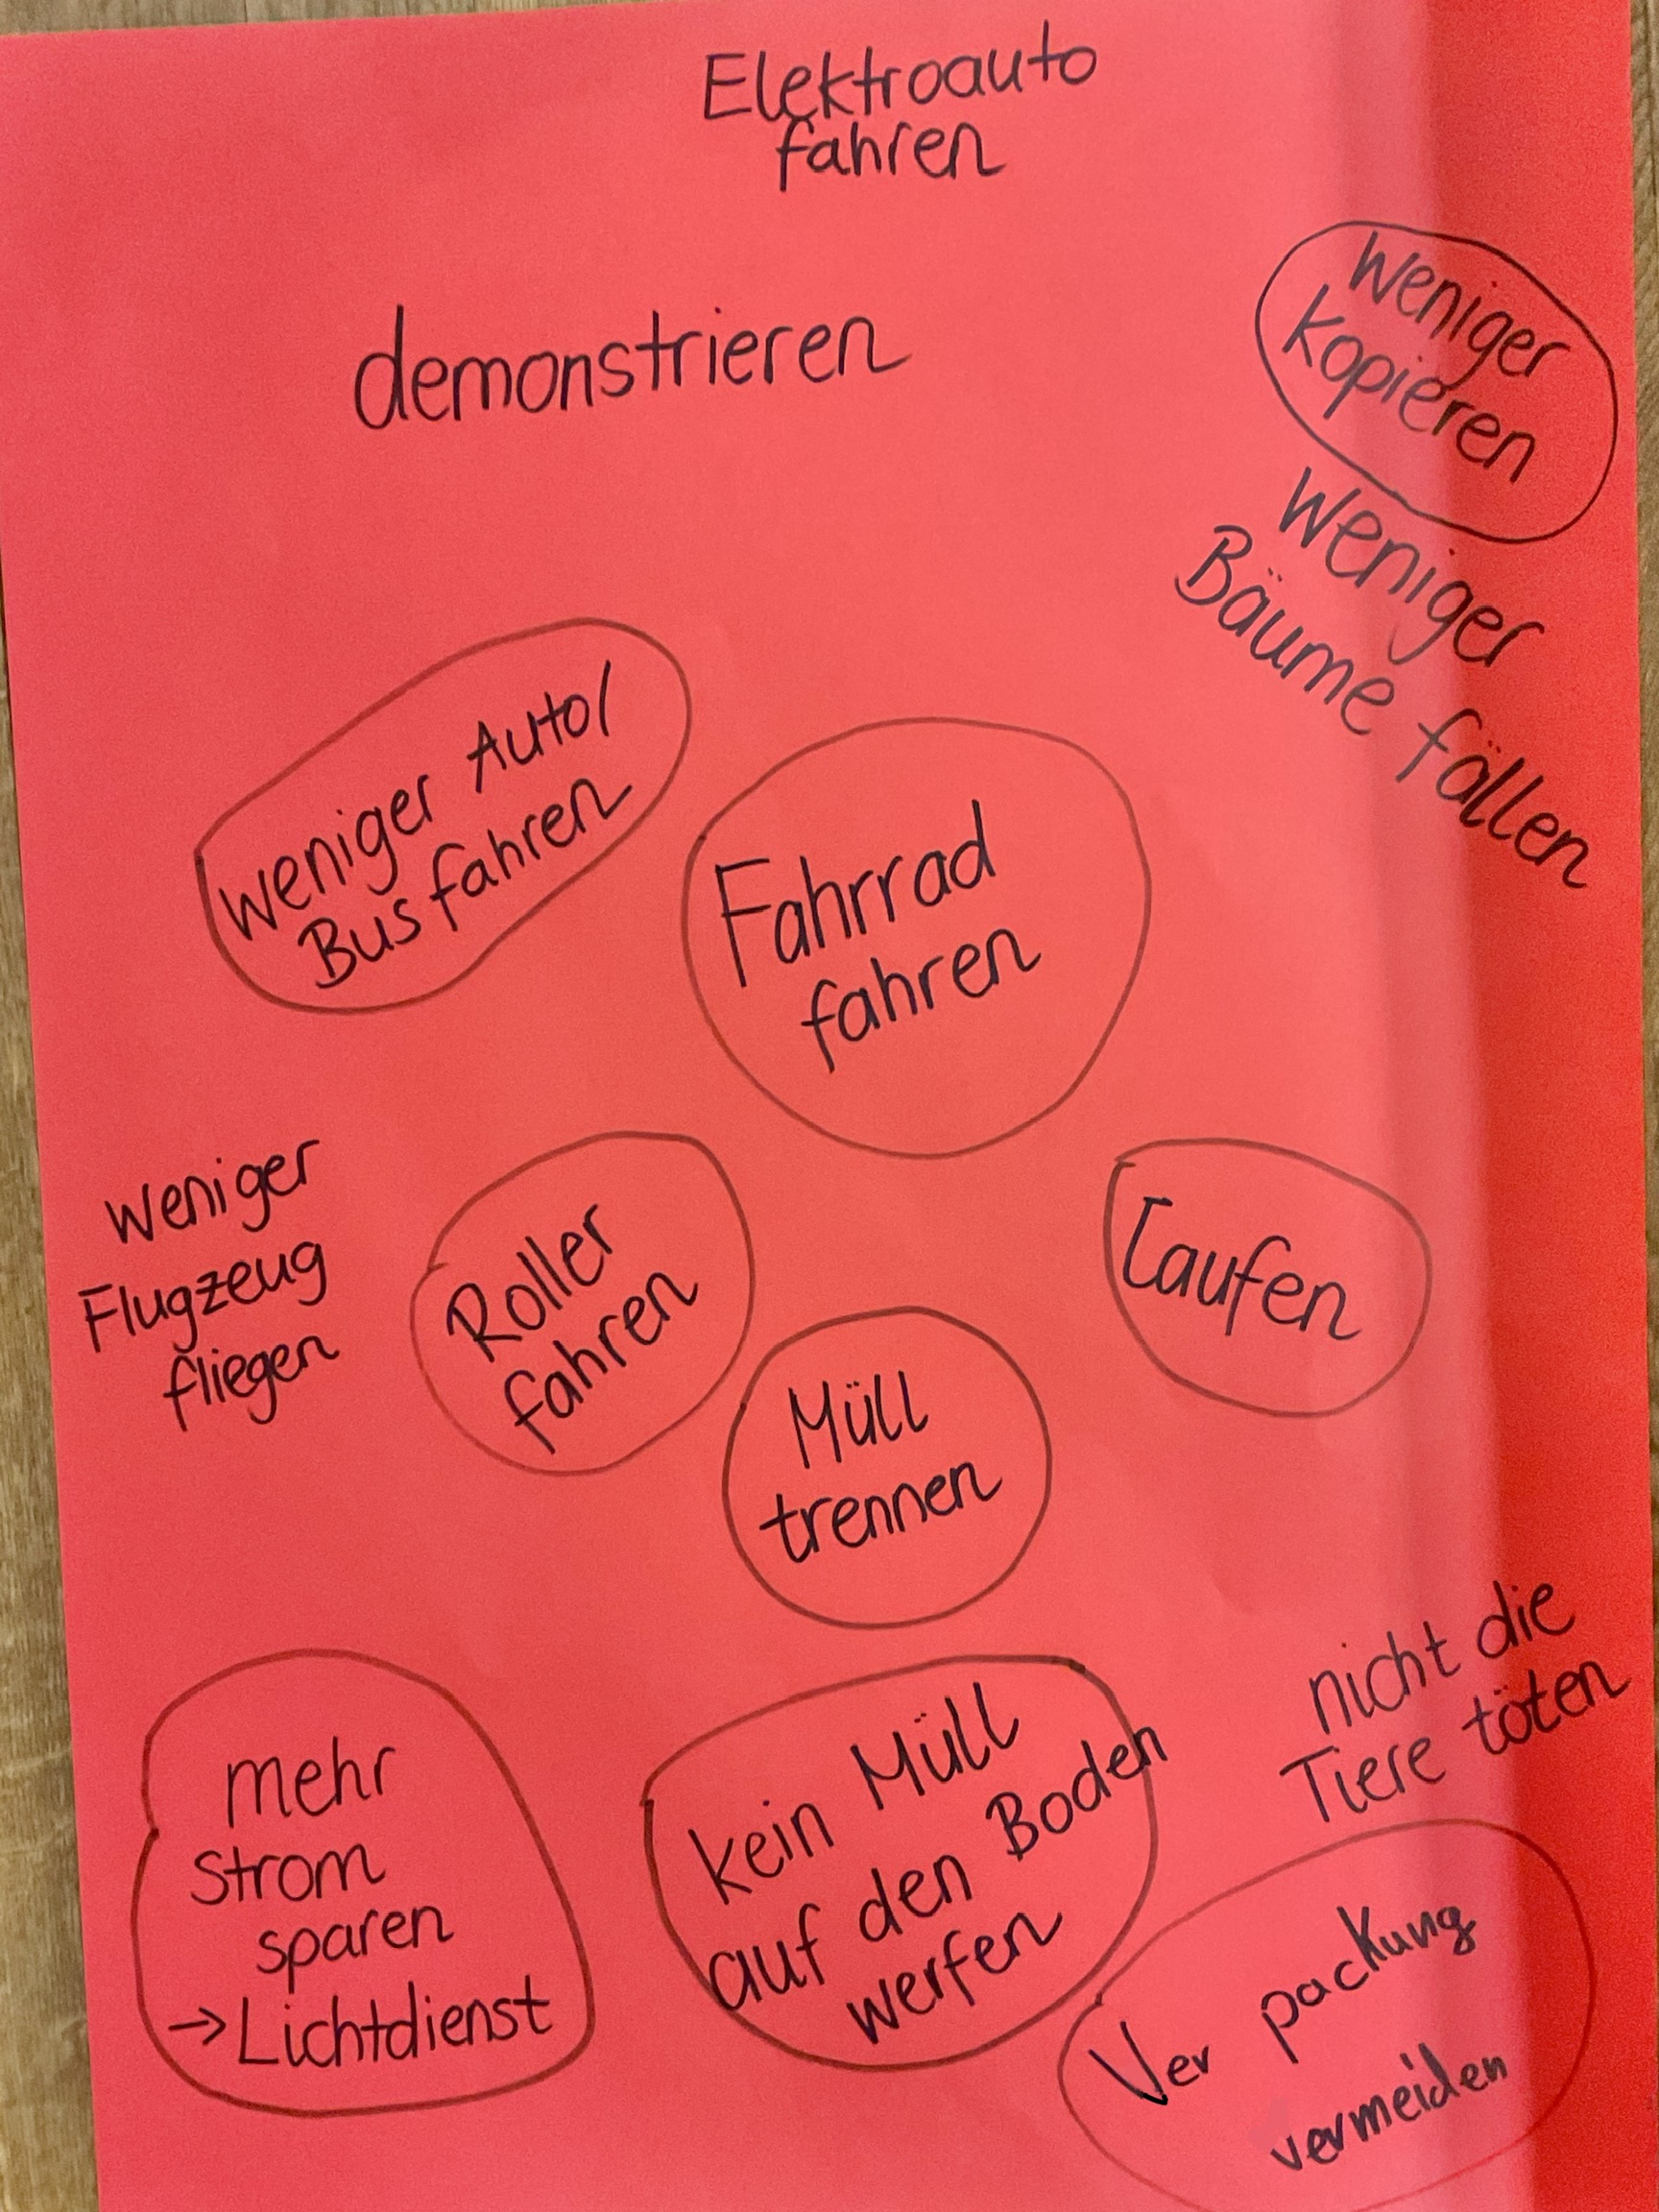 Elektroauto
fahren
demonstrieren
Weniger
kopieren
Weniger
Bäume fällen
weniger Auto/
Bus fahren
Fahrrad
fahren
Weniger
Flugzeug
fliegen
Roller
fahren
Laufen
Müll
trennen
nicht die
Tiere töten
mehr
Strom
sparen
→ Lichtdienst
kein Müll
auf den Boden
werfen
Ver packung
vermeiden